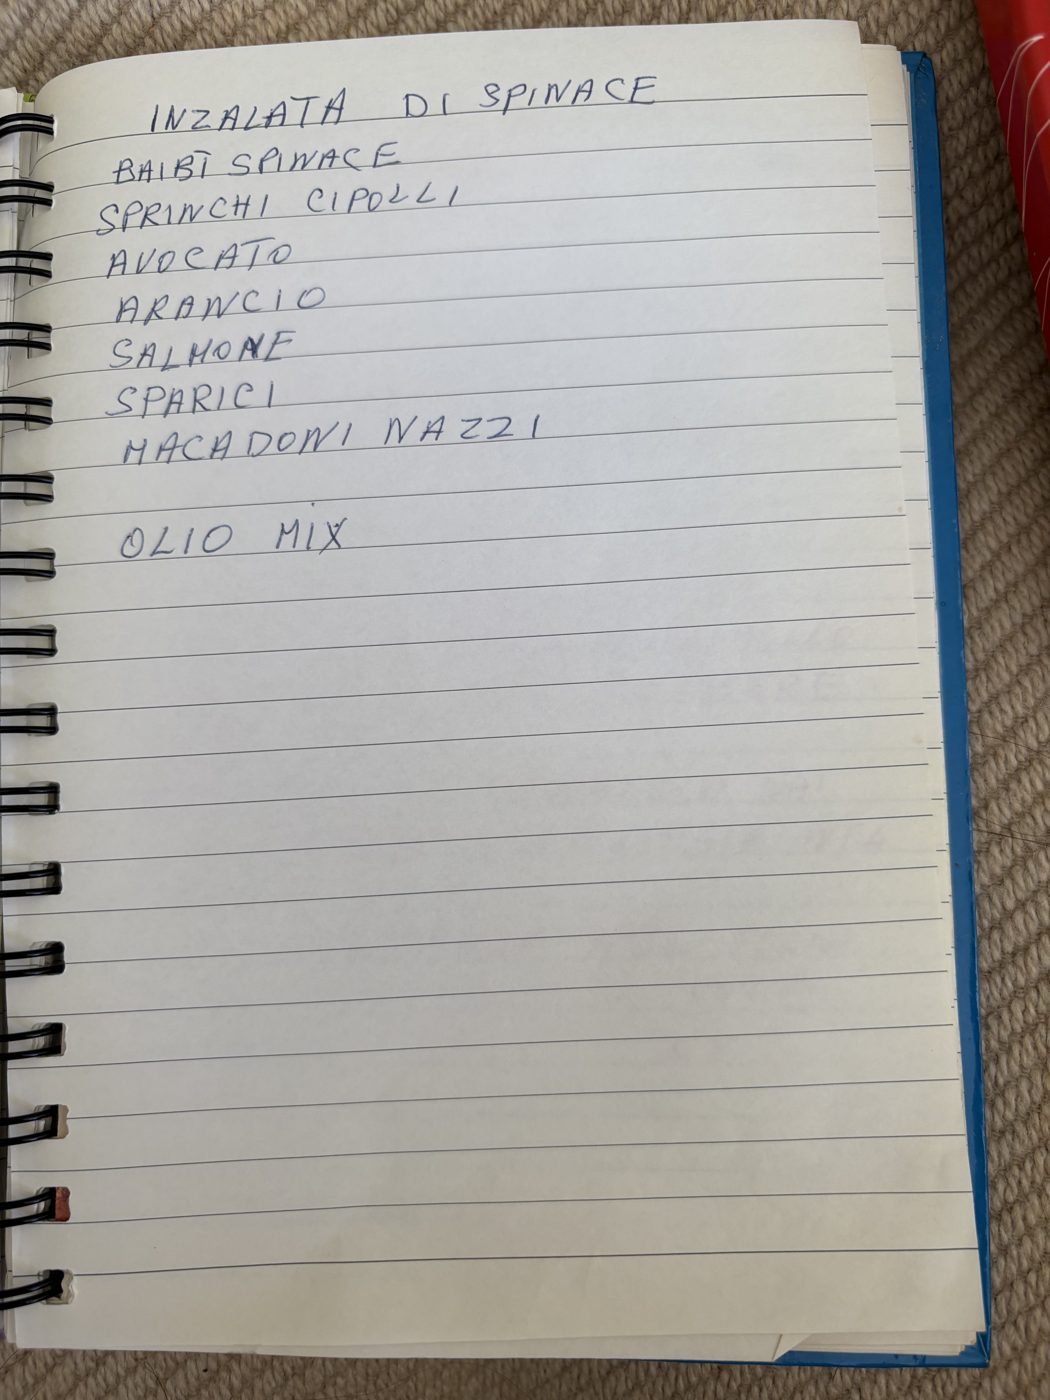 INZALATA DI SPINACE
BAIBI SPINACE
SPRINCHI CIPOLLI
AVOCATO
ARANCIO
SALMONE
SPARICI
MACADONI NAZZI
OLIO MIX